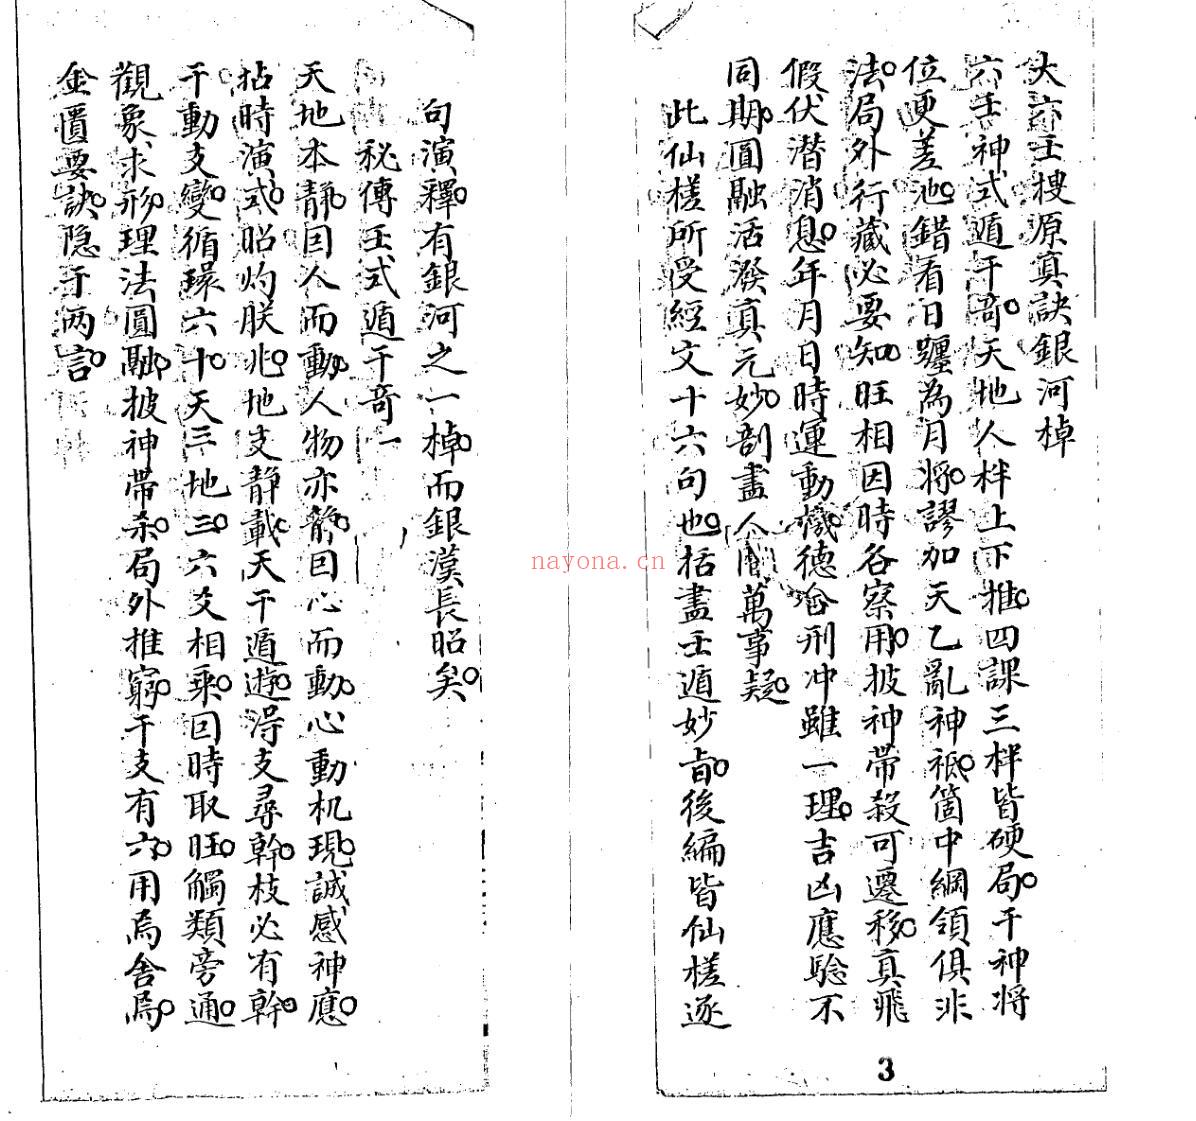 大六壬搜源真訣銀河棹
六壬神式遁干奇。天地人柈上下推。四課三柈皆硬局。干神將
位更差池。錯看日躔為月將。謬加天乙亂神祗。箇中綱領俱非
法。局外行藏必要知。旺相因時各察用。披神帶殺可遷移。真飛
假伏潜消息。年月日時運動機。德合刑冲雖一理。吉凶應驗不
同期。圓融活潑真元妙。剖盡人間萬事疑。
此仙槎所受經文十六句也。括盡壬遁妙旨。後編皆仙槎逐
3
句演釋。有銀河之一棹。而銀漢長昭矣。
秘傳壬式遁干奇一
天地本静。囙人而動。人物亦静。囙心而動。心動机現。誠感神應。
拈時演式。昭灼朕兆。地支静載。天干遁遊。淂支尋幹。枝必有幹。
干動支變。循環六十。天三地三。六爻相乘。囙時取旺。觸類旁通。
觀象求形。理法圓融。披神帶杀。局外推窮。干支有六。用爲舍爲。
金匱要訣。隐于两言。
nayona.cn